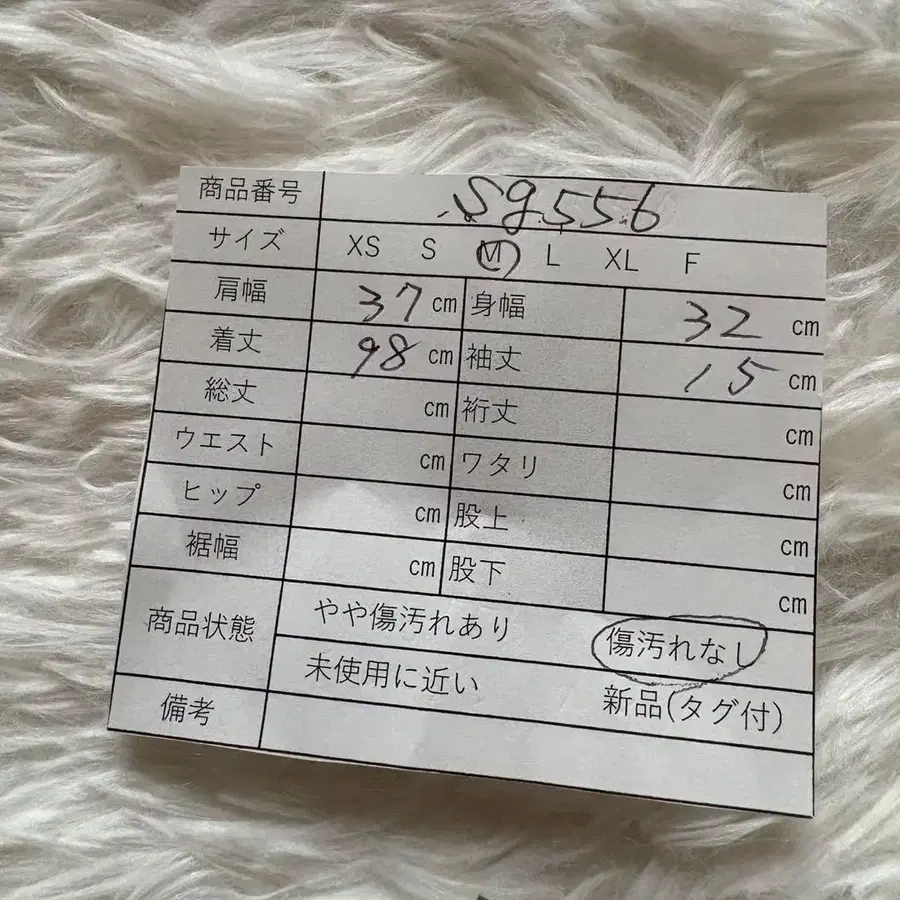 商品番号 Sg556
サイズ XS S M L XL F
肩幅 37 cm 身幅 32 cm
着丈 98 cm 袖丈 15 cm
総丈 cm 裄丈 cm
ウエスト cm ワタリ cm
ヒップ cm 股上 cm
裾幅 cm 股下 cm
商品状態 やや傷汚れあり 傷汚れなし
未使用に近い 新品(タグ付)
備考